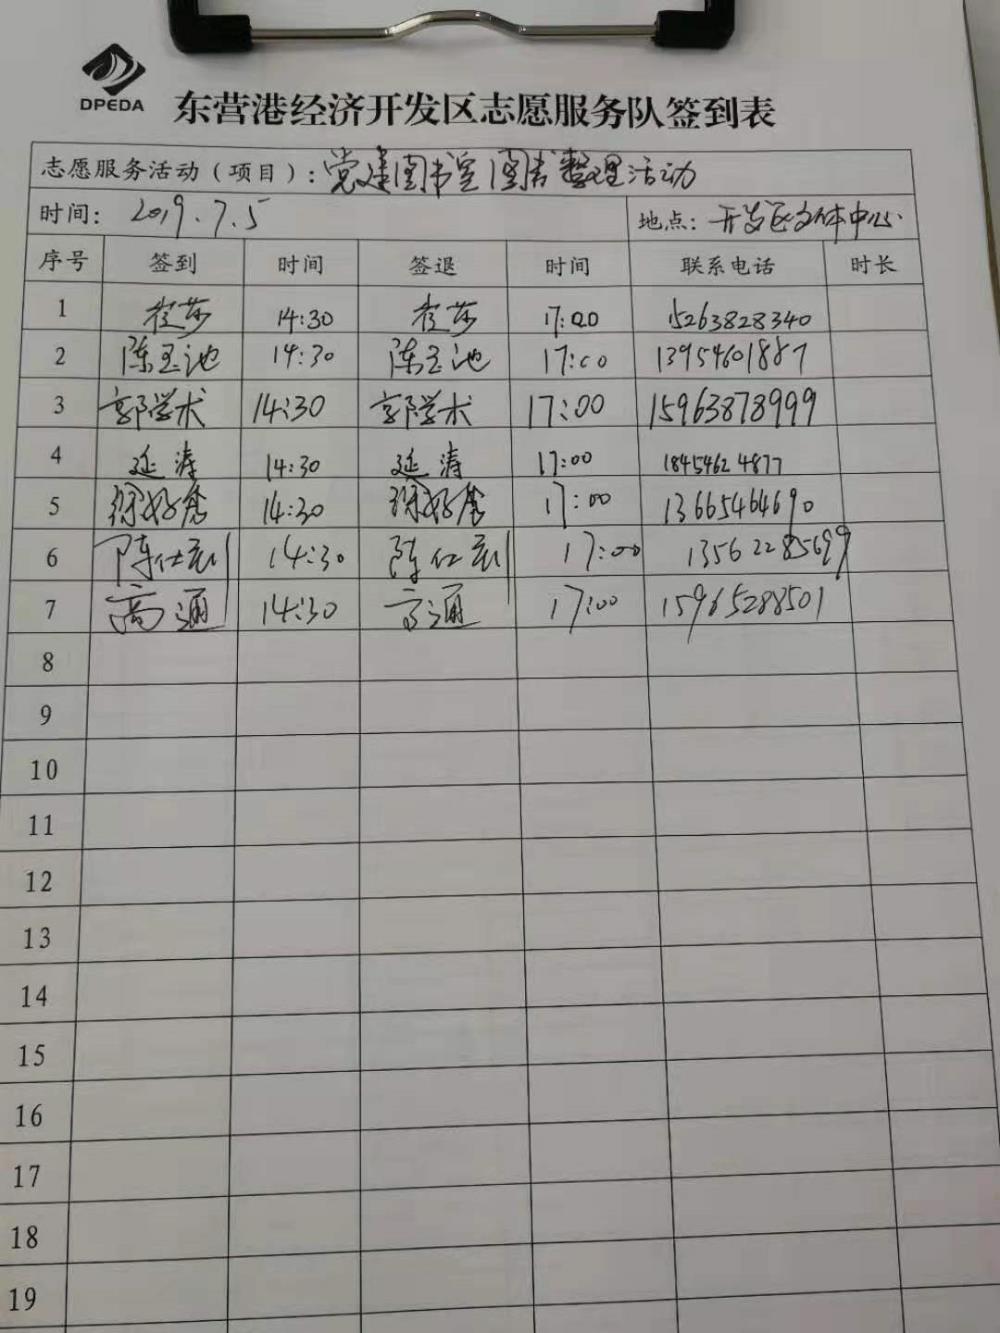 DPEDA
东营港经济开发区志愿服务队签到表
志愿服务活动（项目）：党建图书室图书整理活动
时间： 2019.7.5 地点：开发区文体中心
序号 签到 时间 签退 时间 联系电话 时长
1 崔莎 14:30 崔莎 17:00 15263828340
2 陈玉池 14:30 陈玉池 17:00 13954601887
3 郭学术 14:30 郭学术 17:00 15963878999
4 延涛 14:30 延涛 17:00 18454624877
5 徐好秀 14:30 徐好秀 17:00 13665464690
6 陈仕 14:30 陈仕 17:00 13562285699
7 高通 14:30 高通 17:00 15965288501
8
9
10
11
12
13
14
15
16
17
18
19